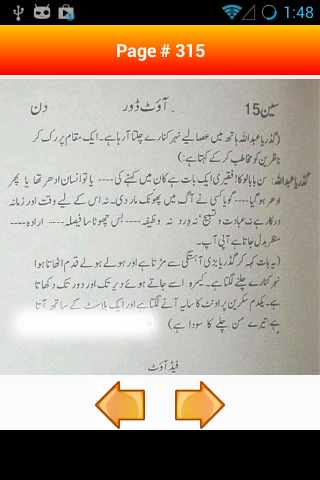 1:48
Page # 315
سین 15 آؤٹ ڈور دن
(گڈریا عبداللہ ہاتھ میں عصا لیے نہر کنارے چلتا آ رہا ہے۔ ایک مقام پر رک کر
ناظرین کو مخاطب کر کے کہتا ہے:)
گڈریا عبداللہ: سن بابا لوکا! فقیری ایک بات ہے کان میں کہنے کی ---- یا تو انسان ادھر تھا یا پھر
ادھر ہو گیا ---- گویا کسی نے آگ میں پھونک مار دی۔ نہ اس کے لیے وقت اور زمانہ
درکار ہے نہ عبادت و تسبیح نہ ورد نہ وظیفہ ---- بس چھوٹا سا فیصلہ ---- ارادہ ----
منظر بدل جاتا ہے آپی آپ۔
(یہ بات کہہ کر گڈریا بڑی آہستگی سے مڑتا ہے اور ہولے ہولے قدم اٹھاتا ہوا
نہر کنارے چلنے لگتا ہے۔ کیمرہ اسے جاتے ہوئے دیر تک اور دور تک دکھاتا
ہے۔ یکدم سکرین پر اونٹ کا سایہ آنے لگتا ہے اور ایک بلاسٹ کے ساتھ آتا
ہے تیرے من چلے کا سودا ہے)
فیڈ آؤٹ